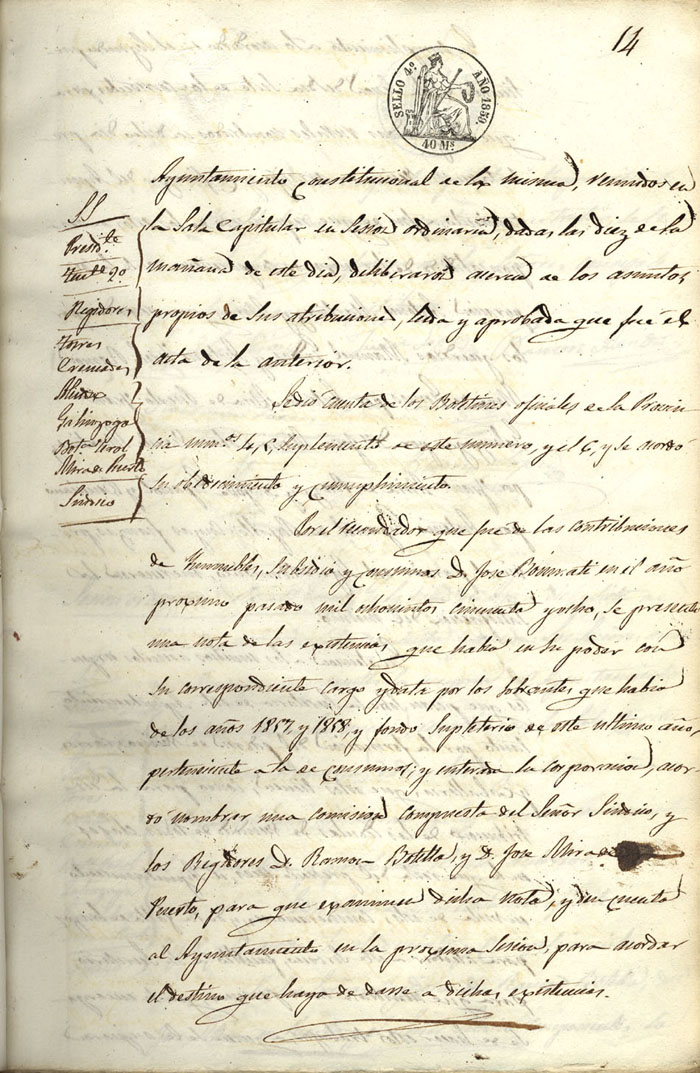 14
SELLO 4º AÑO 1859.
40 Ms
SS
Presid.te
Ten.te 2º
Regidores
Torres
Cremades
Botª
Mira de Puerto
Sindico
Ayuntamiento Constitucional de la misma, reunidos en
la Sala Capitular en Sesion ordinaria, dadas las diez de la
mañana de este dia, deliberaron acerca de los asuntos
propios de sus atribuciones, leida y aprobada que fue el
acta de la anterior.
Se dió cuenta de los Boletines oficiales de la Provin
cia num.os 4, 5, suplemento de este numero, y el 6, y se acordó
su obedecimiento y cumplimiento.
Por el recaudador que fue de las contribuciones
de Ynmuebles, Subsidio y Consumos D. Jose en el año
proximo pasado mil ochocientos cincuenta y ocho, se presentó
una nota de las existencias que habia en su poder con
su correspondiente cargo y data por los sobrantes que habia
de los años 1857 y 1858, y fondo supletorio de este ultimo año,
perteneciente a la de consumos; y enterada la corporacion, acor
dó nombrar una comision compuesta del Señor Sindico, y
los Regidores D. Ramon Botella, y D. Jose Mira de
Puerto, para que examinen dicha nota, y den cuenta
al Ayuntamiento en la proxima Sesion, para acordar
el destino que haya de darse a dichas existencias.